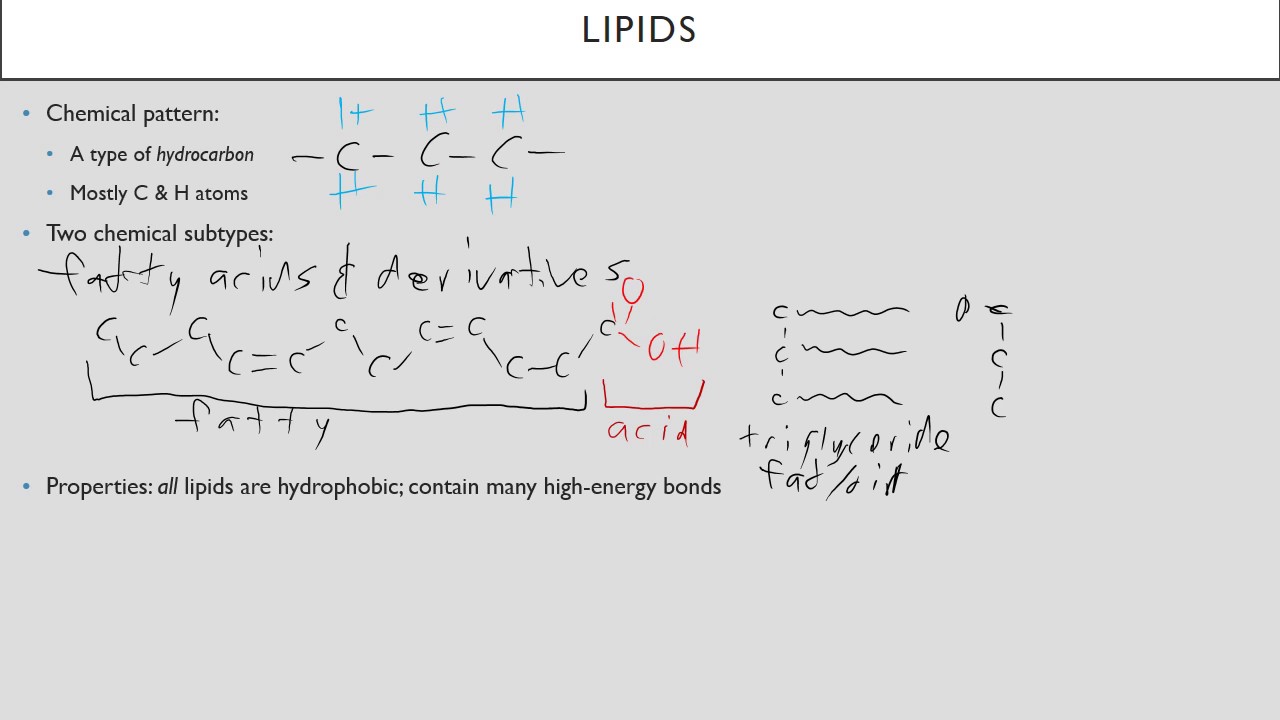 LIPIDS
• Chemical pattern:
H H H
• A type of hydrocarbon
– C – C – C –
• Mostly C & H atoms
H H H
• Two chemical subtypes:
fatty acids & derivatives
O
C C C C=C C C
C C=C C C–C OH
C O C
C C
C C
fatty
acid
triglyceride
fat/oil
• Properties: all lipids are hydrophobic; contain many high-energy bonds